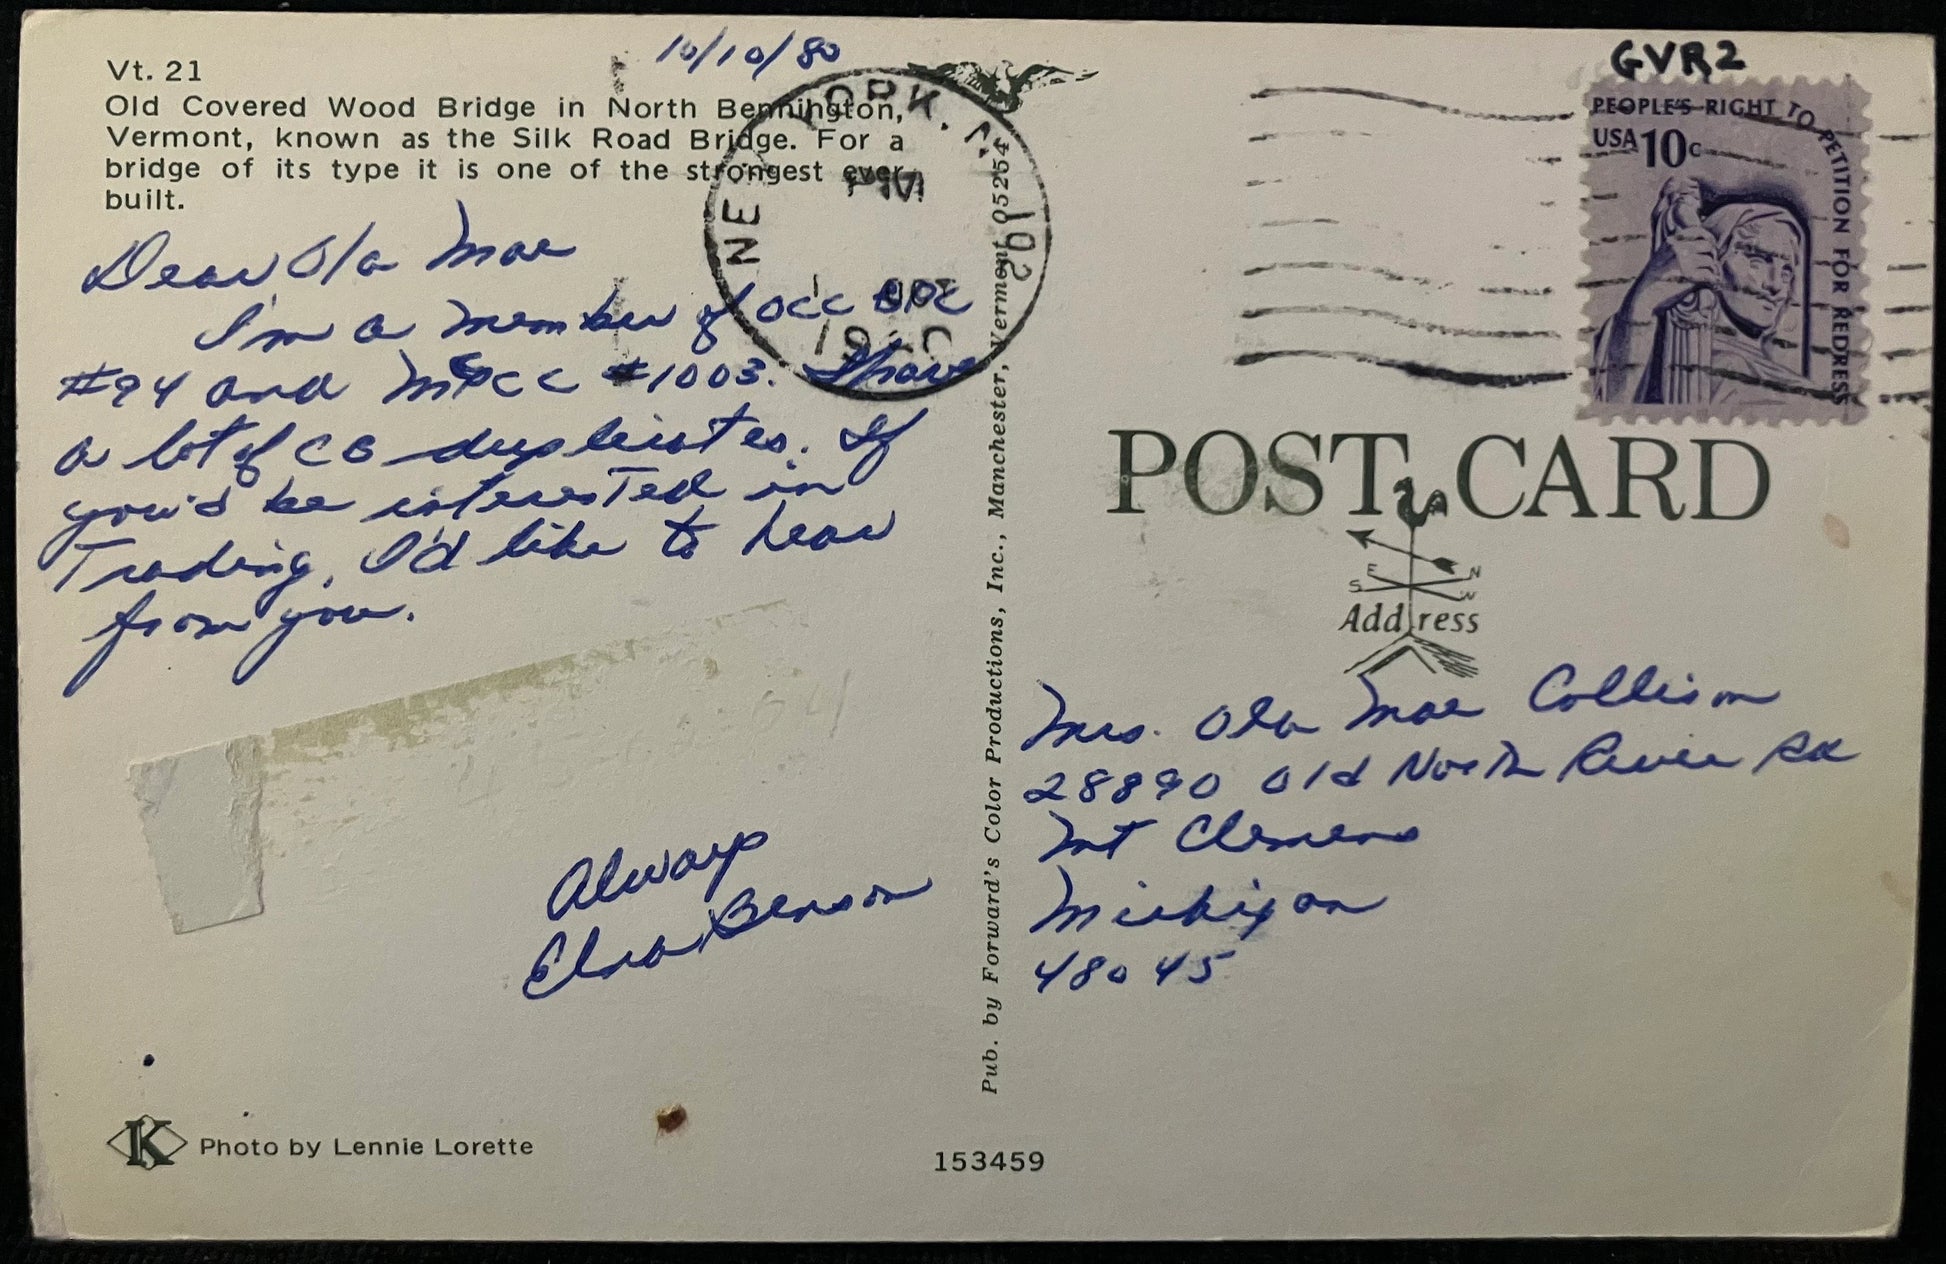 10/10/80
GVR2
Vt. 21
Old Covered Wood Bridge in North Bennington,
Vermont, known as the Silk Road Bridge. For a
bridge of its type it is one of the strongest ever
built.
NEW YORK, N.Y.
PM
OCT
102
PEOPLE'S RIGHT TO PETITION FOR REDRESS
USA 10c
Dear Ola Mae
I'm a member of OCC
#94 and MPCC #1003. I have
a lot of CB duplicates. If
you'd be interested in
Trading, I'd like to hear
from you.
Always
Elna Benson
POST CARD
E N
S W
Address
Mrs. Ola Mae Collison
28890 Old North River Rd
Mt Clemens
Michigan
48045
Pub. by Forward's Color Productions, Inc., Manchester, Vermont 05254
K Photo by Lennie Lorette
153459